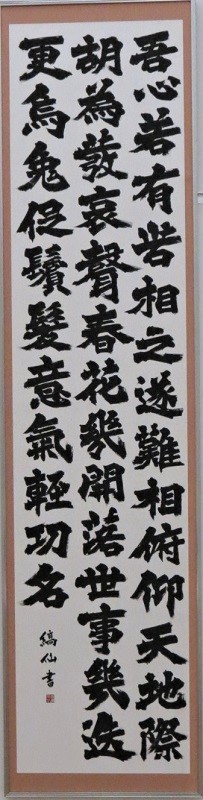 吾心若有苦相之遂難相俯仰天地際
胡為發哀聲春花幾開落世事幾迭
更烏兔促鬢髮意氣輕功名
縞仙書